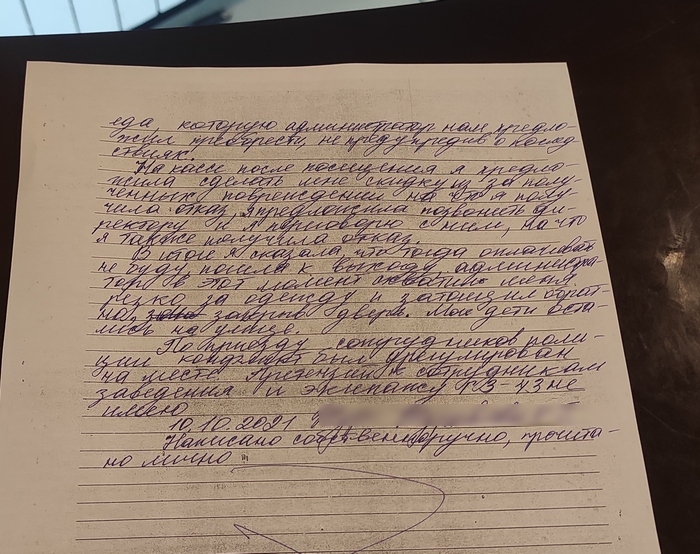 еда, которую администратор нам предло-
жил приобрести, не предупредив о послед-
ствиях.
На кассе после посещения я предло-
жила сделать мне скидку из за полу-
ченных повреждений на что я полу-
чила отказ, я предложила позвонить ди-
ректору и я переговорю с ним, на что
я также получила отказ.
В итоге я сказала что тогда оплачивать
не буду, пошла к выходу, администра-
тор в этот момент схватил меня
резко за одежду и затащил обрат-
но, заперев дверь. Мои дети оста-
лись на улице.
По приезду сотрудников поли-
ции конфликт был урегулирован
на месте. Претензий к сотрудникам
заведения и экипажу ПЗ-43 не
имею
10.10.2021
Написано собственноручно, прочита-
но лично